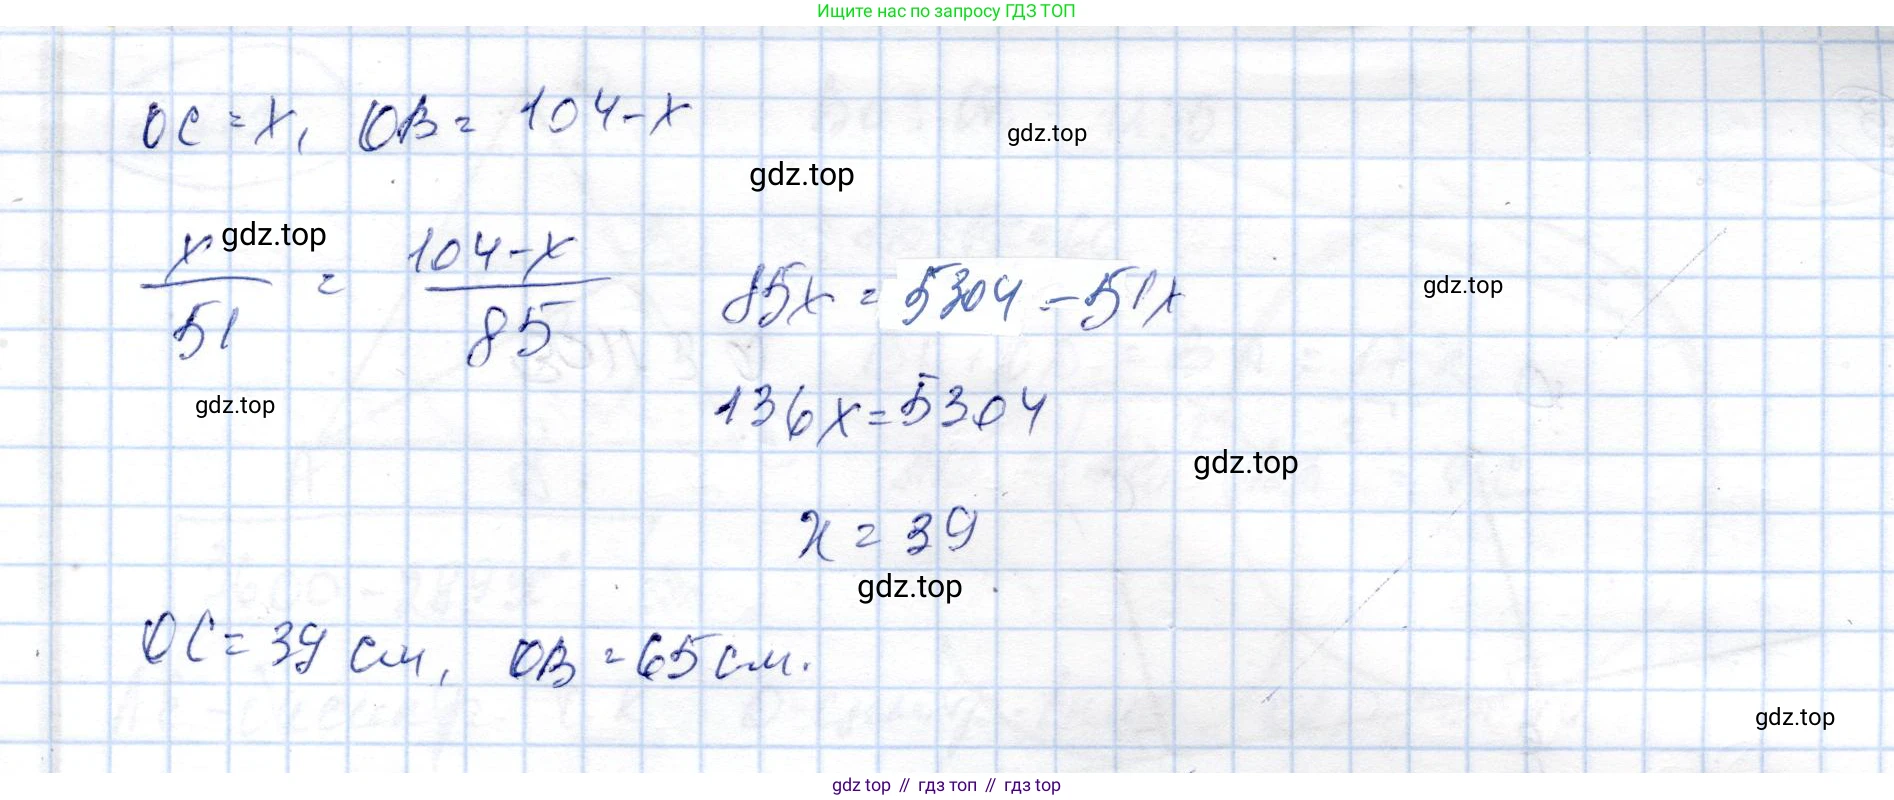 Ищите нас по запросу ГДЗ ТОП
OC = x, OB = 104 - x
gdz.top
gdz.top
x/51 = (104 - x)/85
gdz.top
85x = 5304 - 51x
gdz.top
gdz.top
136x = 5304
gdz.top
x = 39
gdz.top
OC = 39 см, OB = 65 см.
gdz.top
gdz top // гдз топ // гдз top